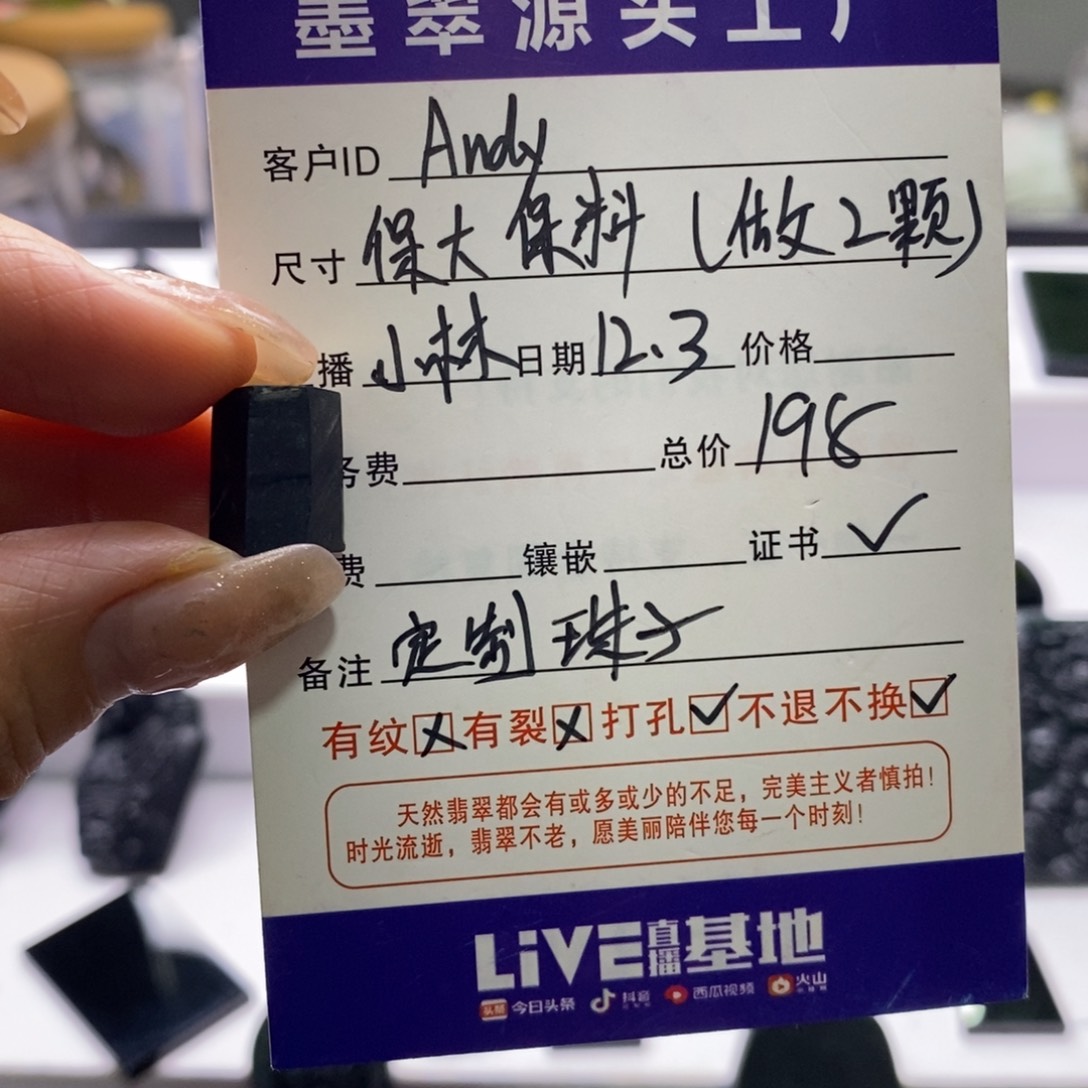 墨翠源头工厂
客户ID Andy
尺寸 保大保料(做2颗)
播 小林 日期 12.3 价格
务费 总价 198
费 镶嵌 证书 ✓
备注 定制珠子
有纹☒有裂☒打孔☑不退不换☑
天然翡翠都会有或多或少的不足，完美主义者慎拍！
时光流逝，翡翠不老，愿美丽陪伴您每一个时刻！
LiVE直播基地
头条 今日头条 抖音 西瓜视频 火山